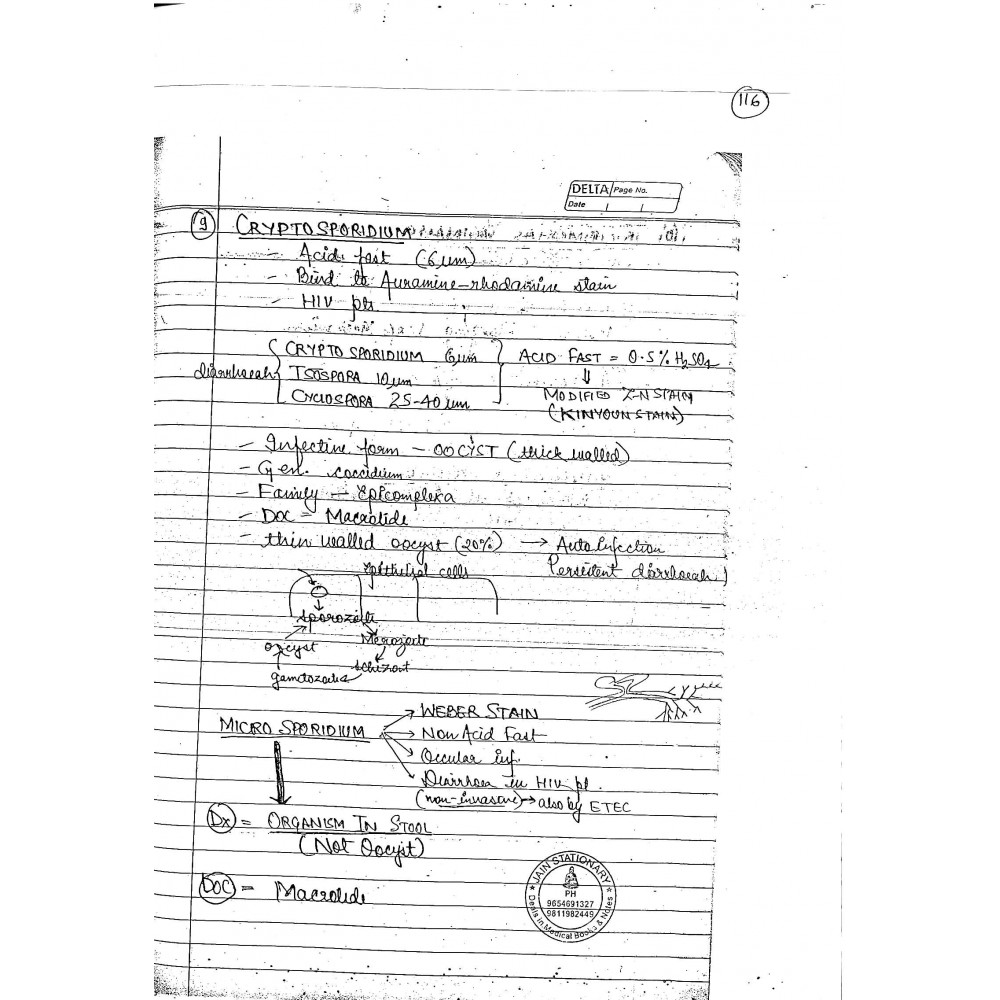 116
DELTA Page No.
Date
9 CRYPTOSPORIDIUM
- Acid fast (6 µm)
- Bind to Auramine-rhodamine stain
- HIV pts
diarrhoeah { CRYPTOSPORIDIUM 6µm } ACID FAST = 0.5% H₂SO₄
ISOSPORA 10µm ⇓
CYCLOSPORA 25-40 µm MODIFIED Z-N STAIN
(KINYOUN STAIN)
- Infective form - OOCYST (thick walled)
- Gen. coccidium
- Family - Epicomplexa
- DOC = Macrolide
- thin walled oocyst (20%) → Auto Infection
Persistent diarrhoeah)
Epithelial cells
sporozoite
oocyst Merozoite
schizont
gamtozoites
MICRO SPORIDIUM → WEBER STAIN
→ Non Acid Fast
→ Occular inf.
→ Diarrhoea in HIV pt
(non-invasive) → also by ETEC
Dx = ORGANISM IN STOOL
(Not Oocyst)
DOC = Macrolide
JAIN STATIONARY
PH
9654691327
9811982449
Deals in Medical Books & Notes